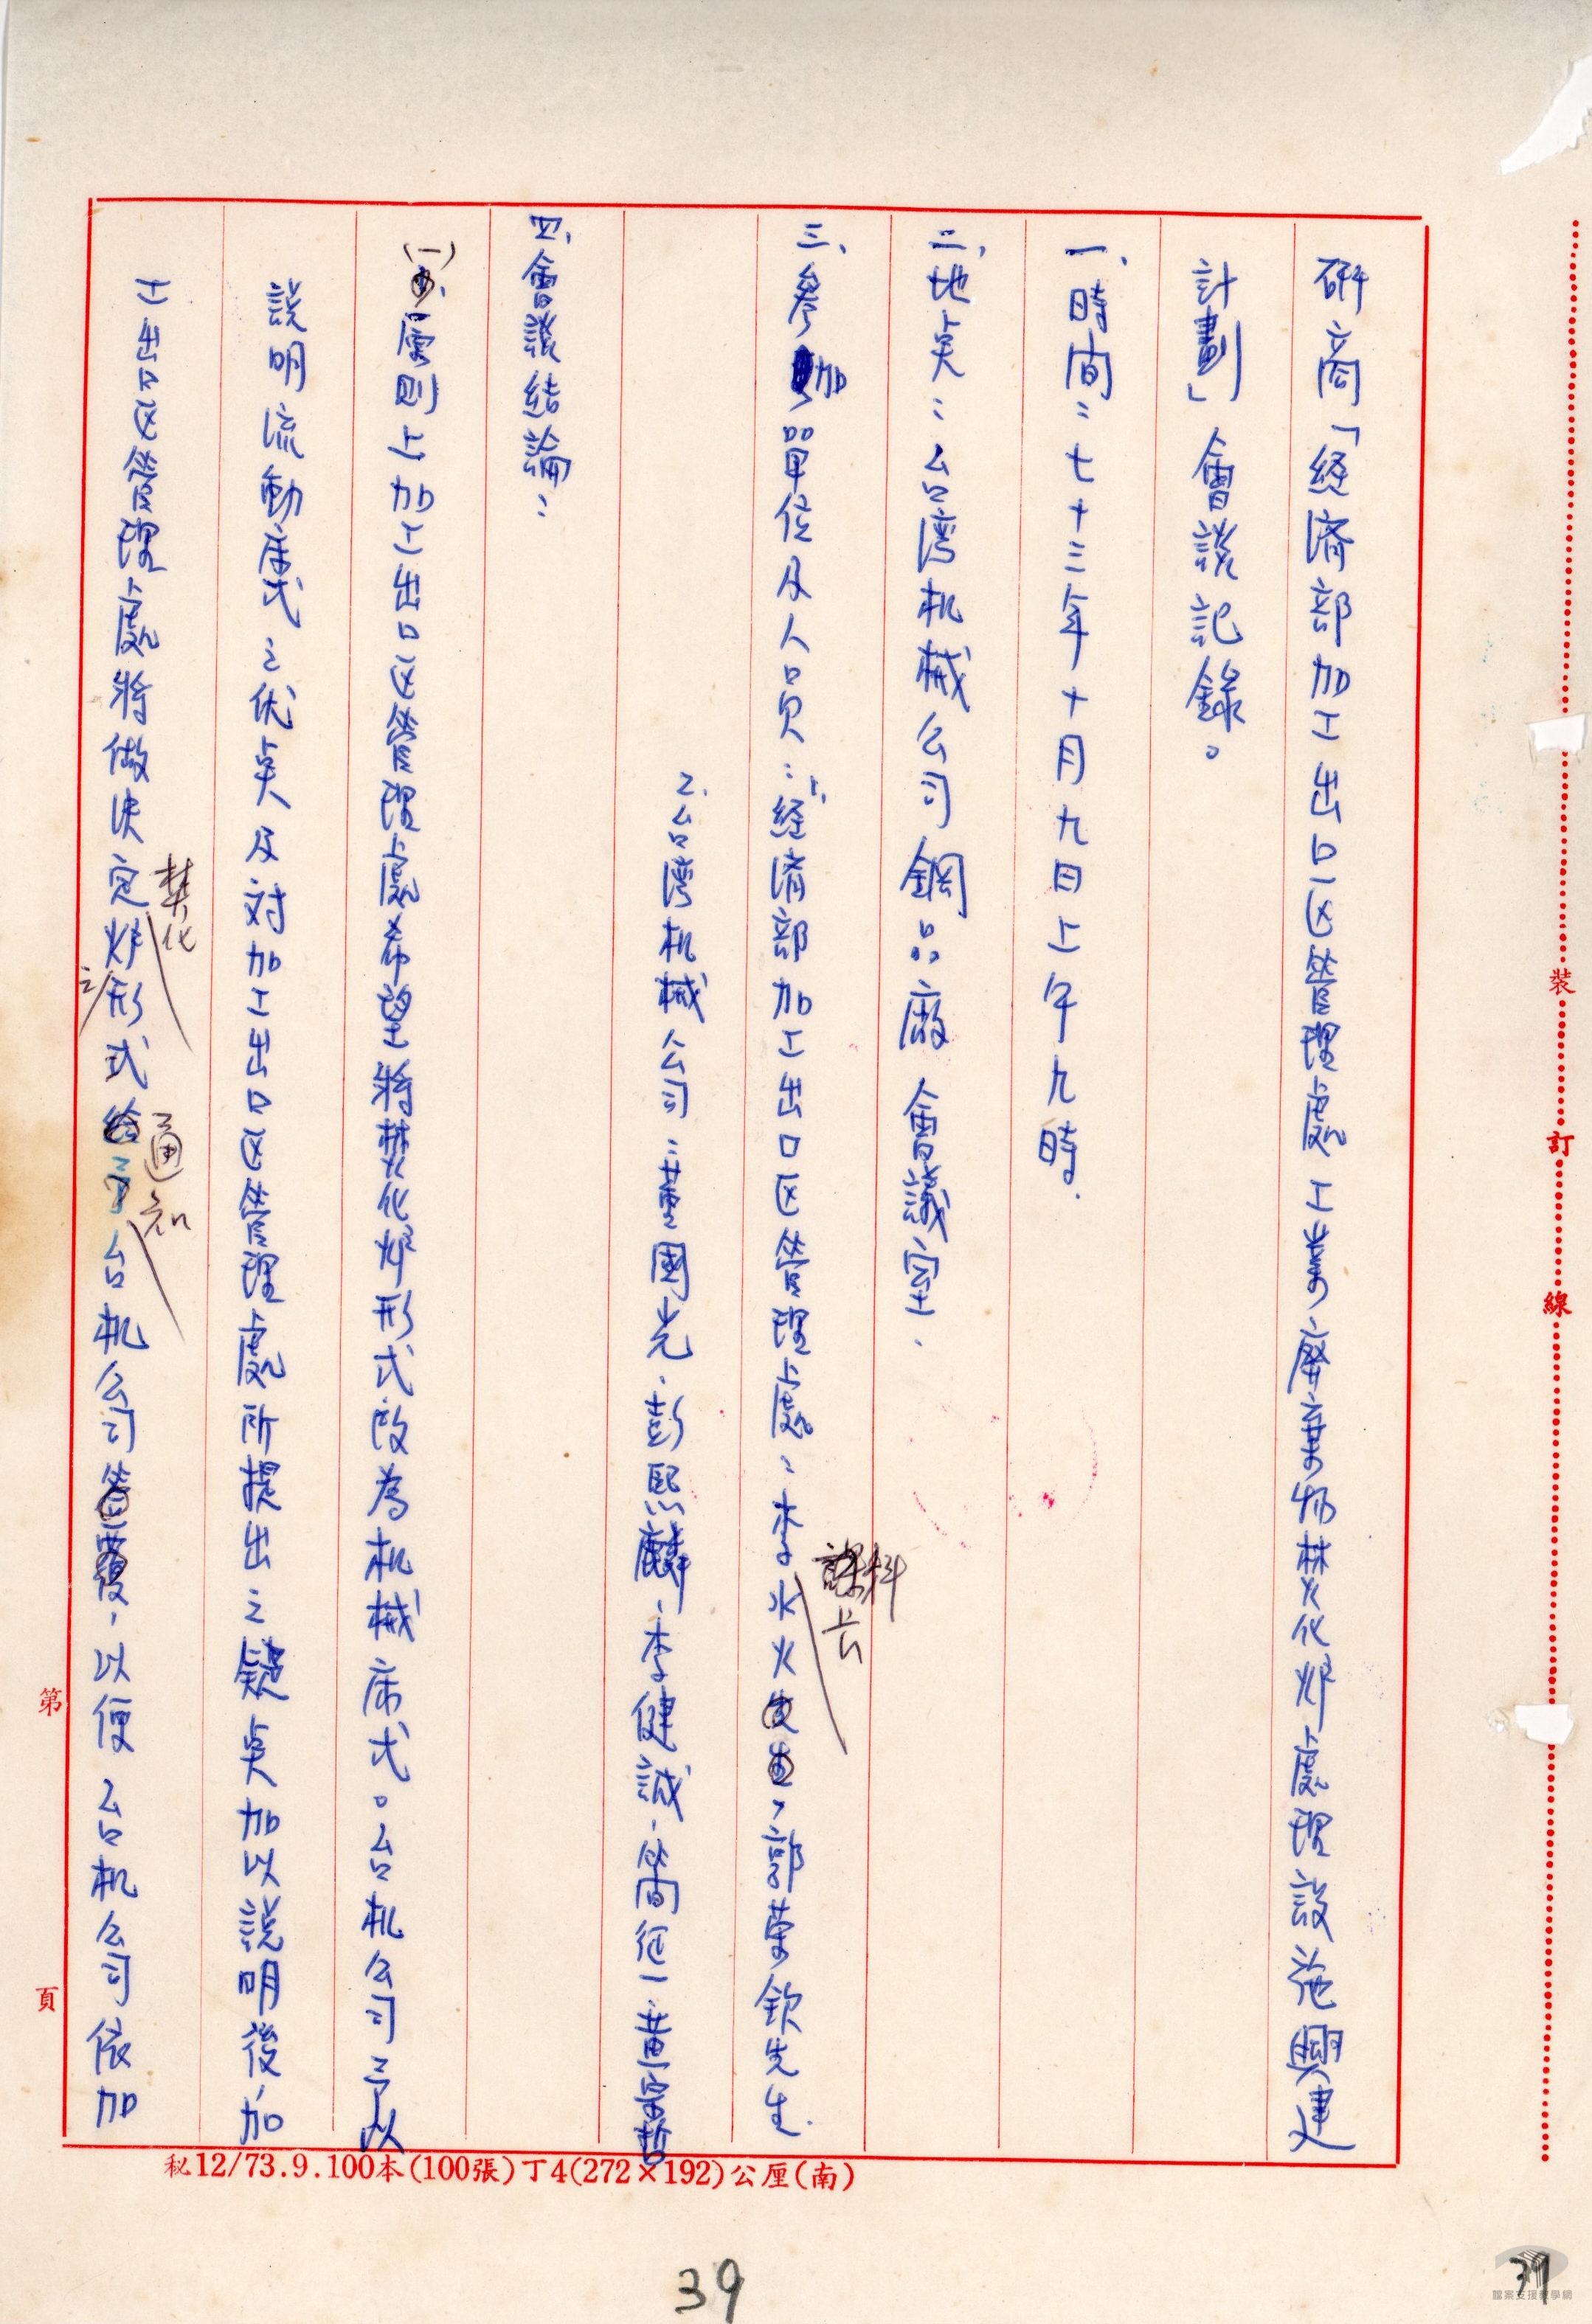 研商「経済部加工出口区管理處工業廢棄物焚化炉處理設施興建
計劃」會談記錄。
一、時间：七十三年十月九日上午九時.
二、地奌：台湾机械公司鋼品廠會議室.
三、參加單位及人員：1.経済部加工出口区管理處：李水火科长，郭榮欽先生.
2.台湾机械公司：董國光、彭熙麟、李健誠、簡征一、黃
四、會談結論：
(一)原則上加工出口区管理處希望將焚化炉形式改為机械床式。台机公司予以
説明流動床式之优奌及対加工出口区管理處所提出之疑奌加以説明後，加
工出口区管理處將做决定焚化炉之形式通知台机公司，以便台机公司依加
裝
訂
線
第
頁
秘12/73.9.100本(100張)丁4(272×192)公厘(南)
39
39
檔案支援教學網